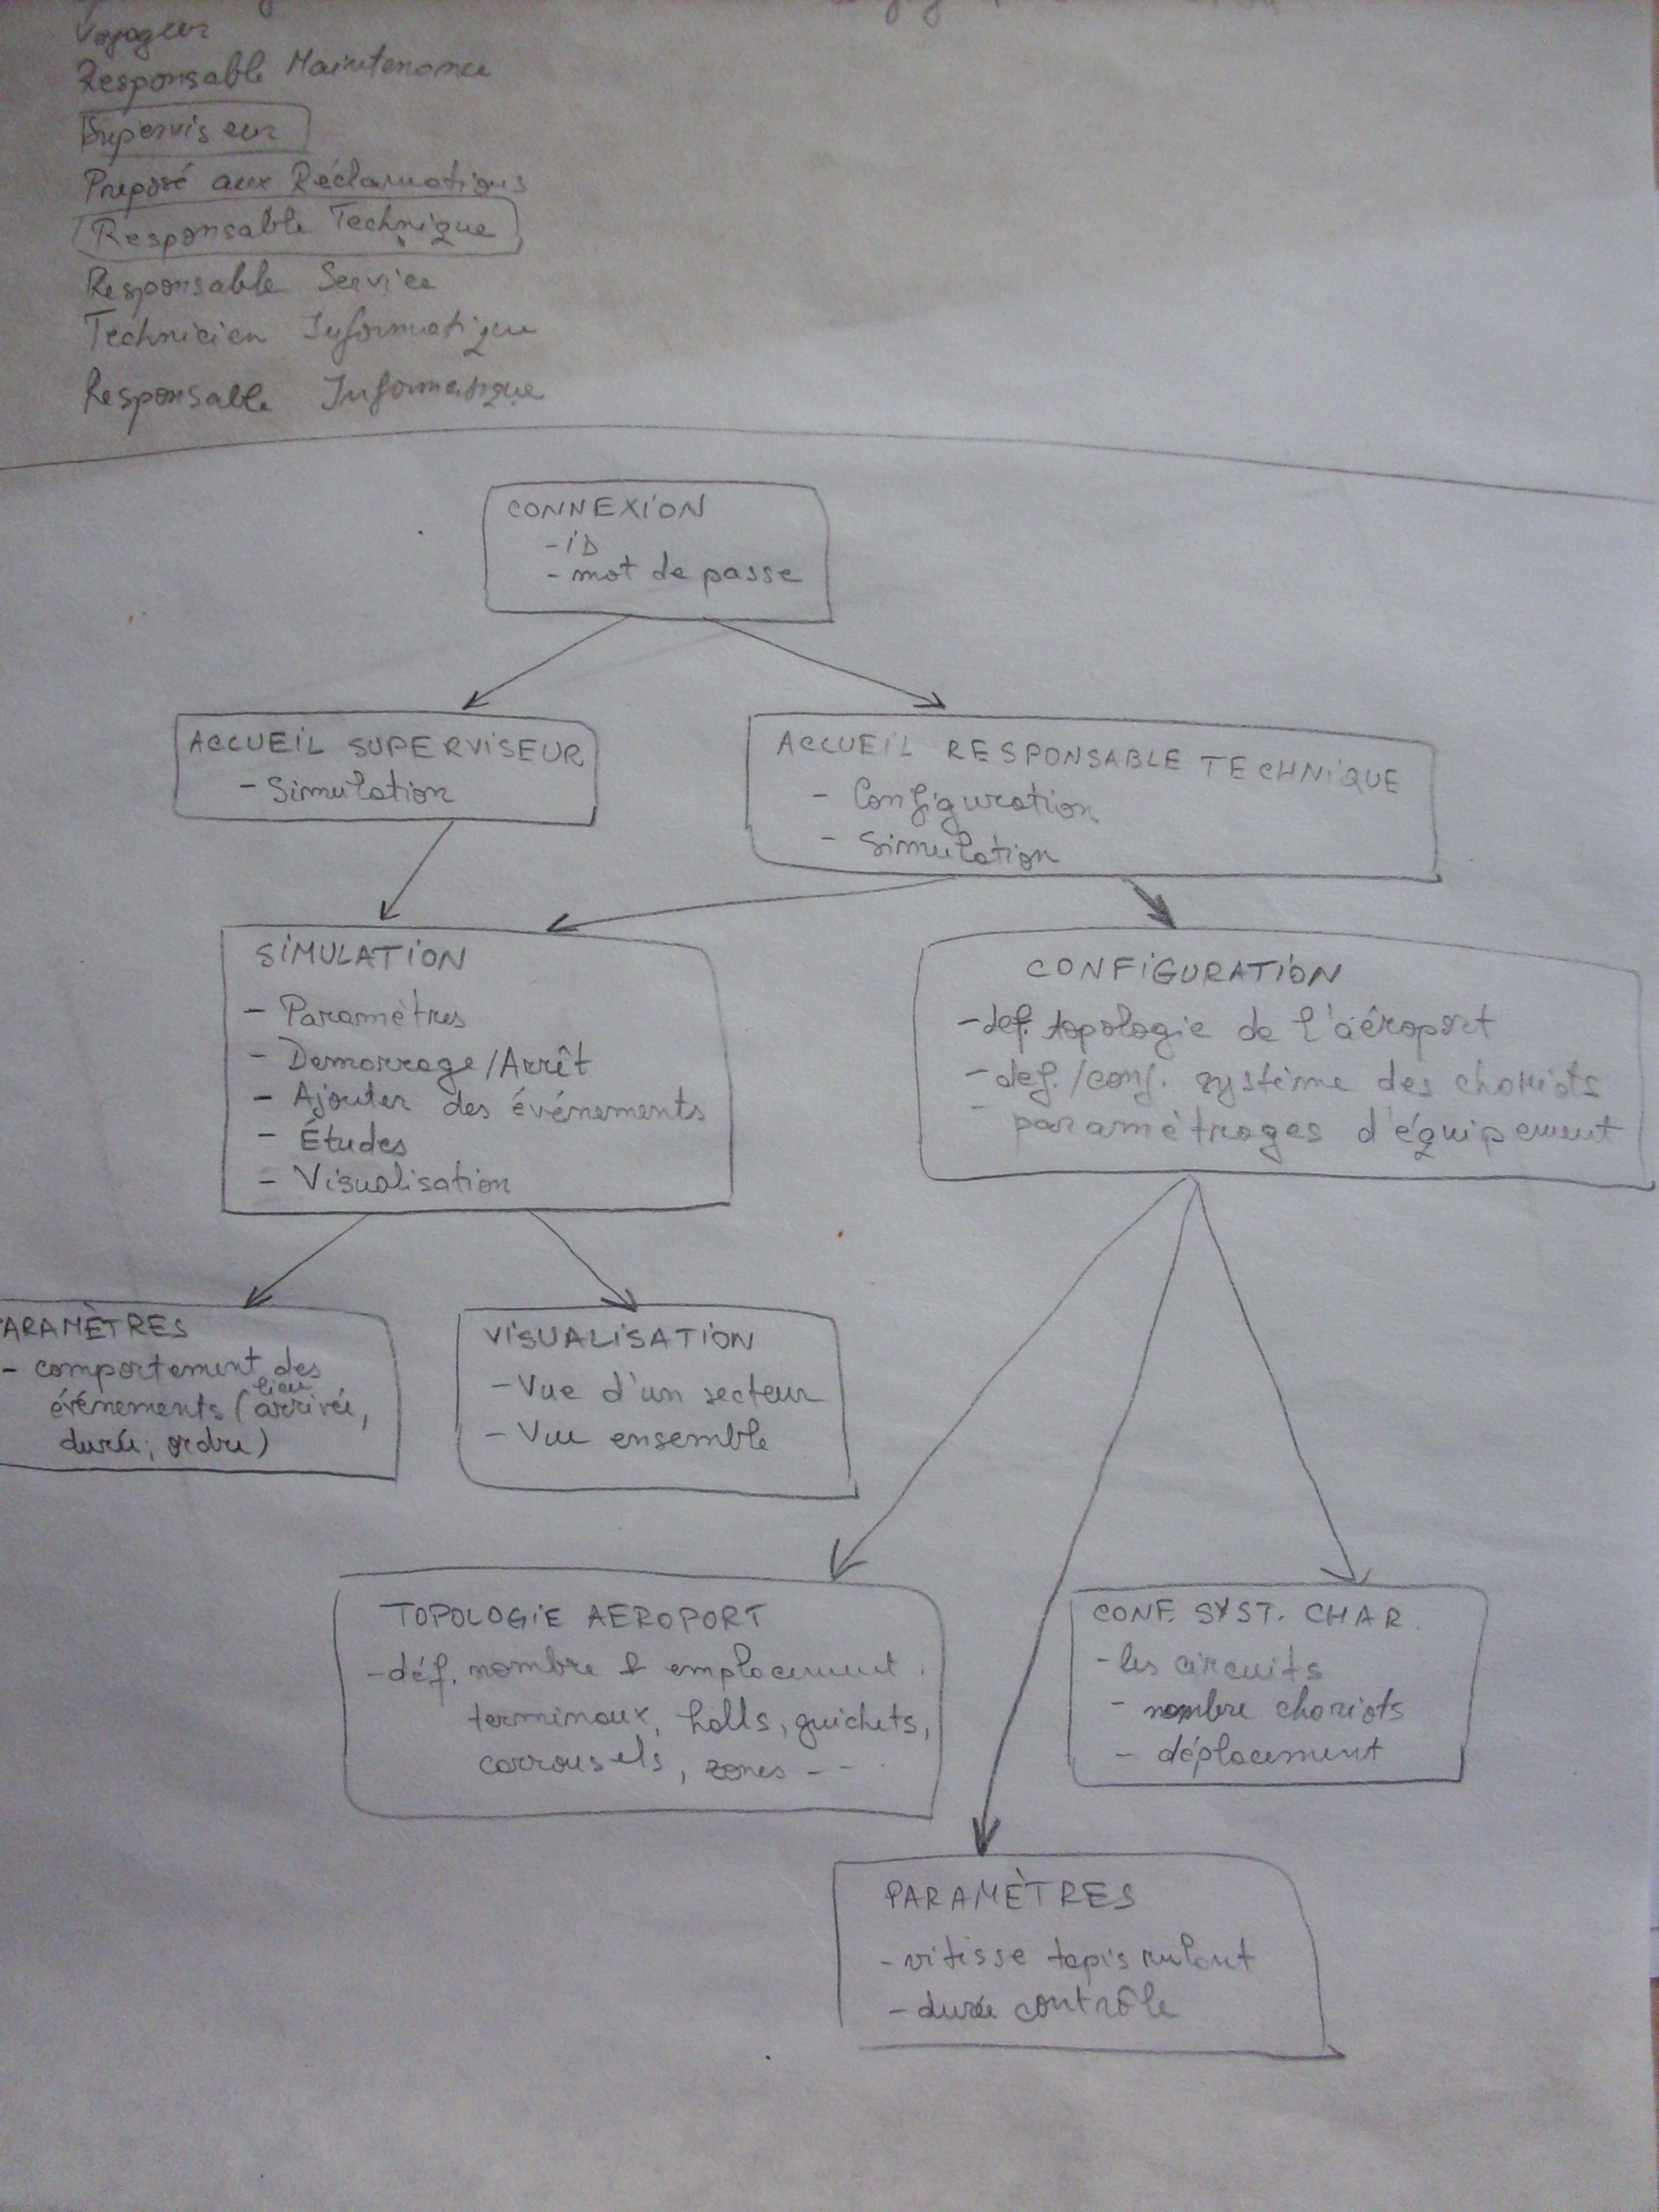 Voyageur
Responsable Maintenance
Superviseur
Préposé aux Réclamations
Responsable Technique
Responsable Service
Technicien Informatique
Responsable Informatique
CONNEXION
- ID
- mot de passe
ACCUEIL SUPERVISEUR
- Simulation
ACCUEIL RESPONSABLE TECHNIQUE
- Configuration
- Simulation
SIMULATION
- Paramètres
- Demarrage/Arrêt
- Ajouter des événements
- Études
- Visualisation
CONFIGURATION
- def. topologie de l'aéroport
- def./conf. système des chariots
- paramètrages d'équipement
ARAMÈTRES
- comportement des
lieu
événements (arrivée,
durée, ordre)
VISUALISATION
- Vue d'un secteur
- Vue ensemble
TOPOLOGIE AEROPORT
- déf. nombre & emplacement
terminaux, halls, guichets,
carrousels, zones - -
CONF. SYST. CHAR.
- les circuits
- nombre chariots
- déplacement
PARAMÈTRES
- vitisse tapis rulant
- durée contrôle